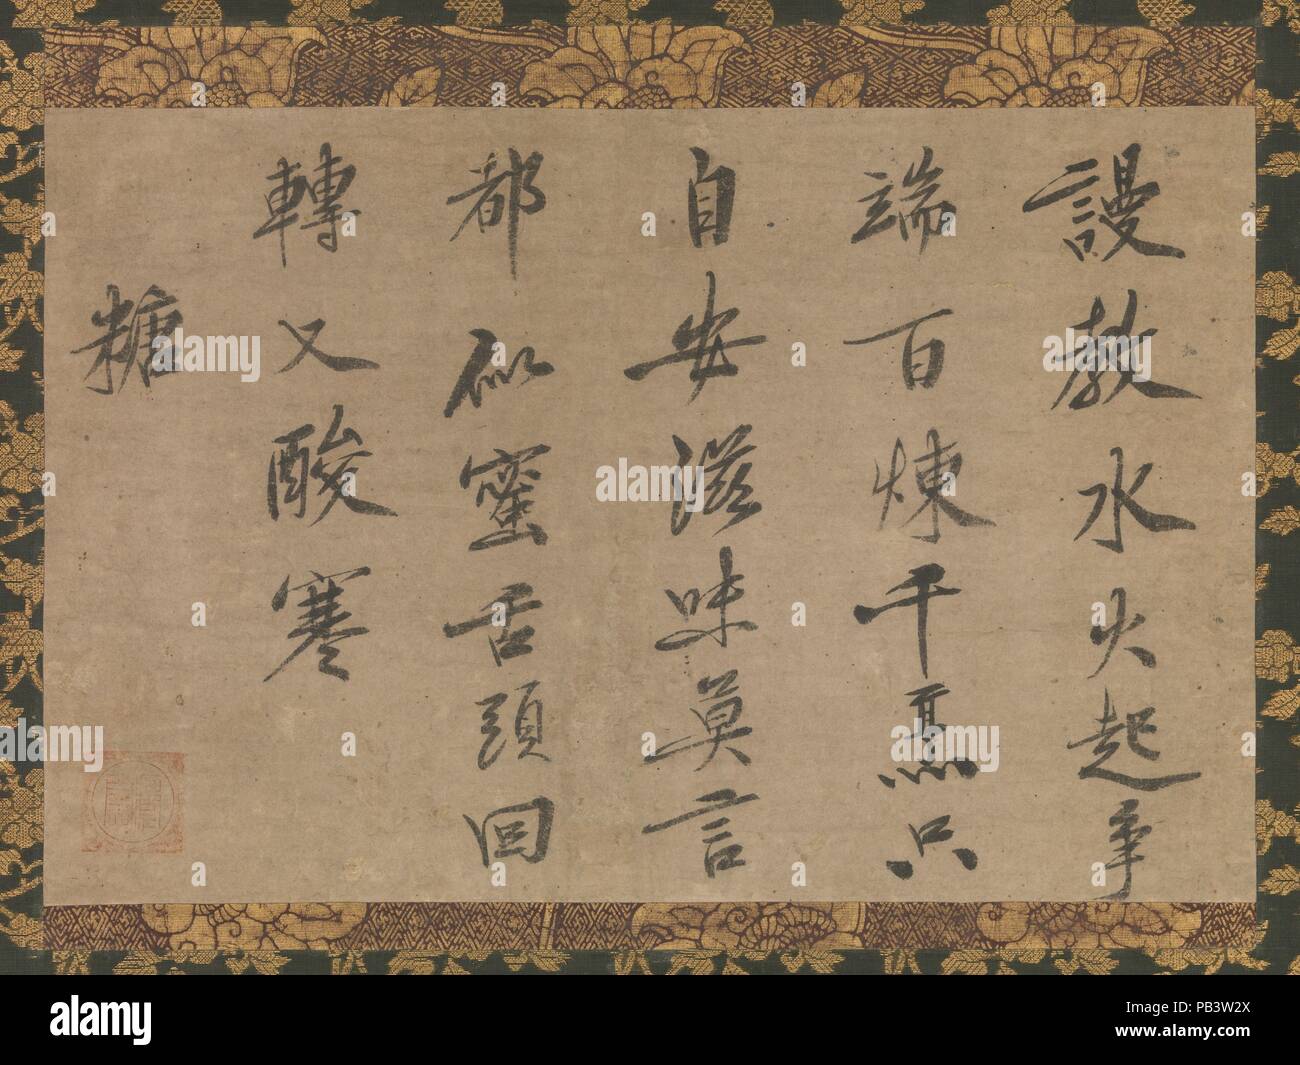 謾教水火起争
端百煉千熏只
自安滋味莫言
都似蜜舌頭回
轉又酸寒
糖
alamy
Image ID: PB3W2X
www.alamy.com